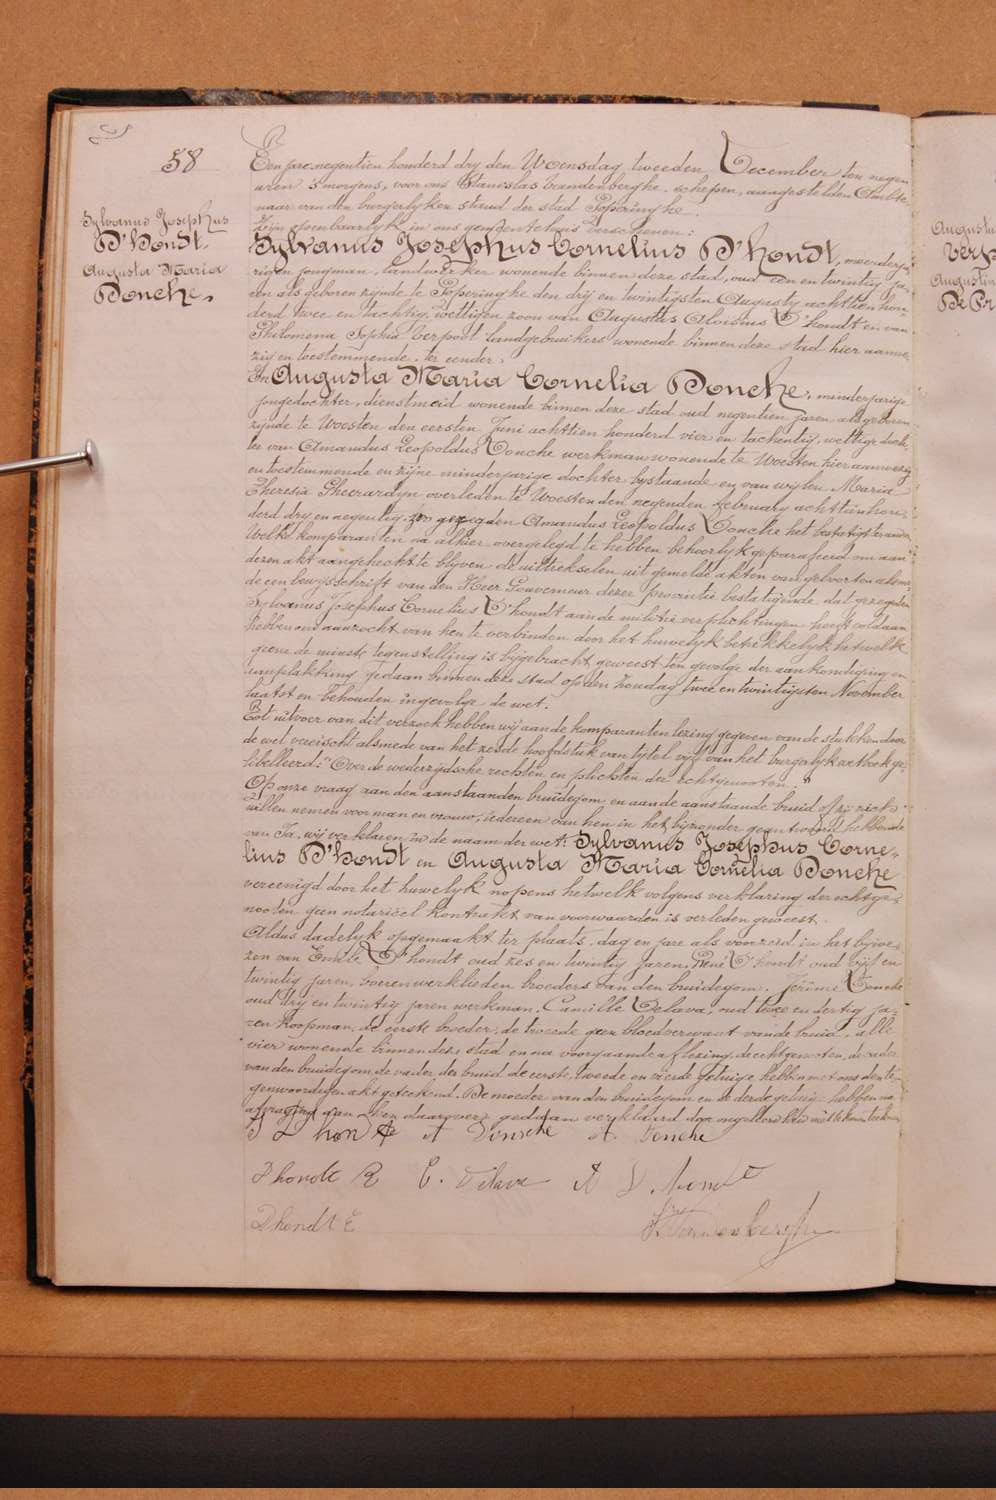 58
Sylvanus Josephus
D'hondt.
Augusta Maria
Doncke.
Een jare negentien honderd dry den Woensdag tweeden December ten negen
uren 's morgens, voor ons Stanislas Vandenberghe, schepen, aangestelden Ambte-
naar van den burgerlyken stand der stad Poperinghe
Zijn openbaarlyk in ons gemeentehuis verschenen:
Sylvanus Josephus Cornelius D'hondt, meerderja-
rigen jongman, landwerker wonende binnen deze stad, oud een en twintig ja-
ren als geboren zijnde te Poperinghe den drij en twintigsten Augusty achttien hon-
derd twee en tachtig, wettigen zoon van Augustus Aloisius D'hondt en van
Philomena Sophia Verpoot landgebruikers wonende binnen deze stad hier aanwe-
zig en toestemmende. ter eender.
En Augusta Maria Cornelia Doncke, minderjarige
jongedochter, dienstmeid wonende binnen deze stad oud negentien jaren als geboren
zijnde te Woesten den eersten Juni achttien honderd vier en tachentig, wettige doch-
ter van Amandus Leopoldus Doncke werkman wonende te Woesten hier aanwezig
en toestemmende en zijne minderjarige dochter bystaande en van wijlen Maria
Theresia Gheerardyn overleden te Woesten den negenden february achttien hon-
derd dry en negentig. gezegden Amandus Leopoldus Doncke het bestatigt
Welke komparanten na alhier overgelegd te hebben behoorlyk geparafeerd om aan
dezen akt aangehecht te blijven: de uittrekselen uit gemelde akten van geboorten alsme-
de een bewijsschrift van den Heer Gouverneur dezer provintie bestatigende dat gezegden
Sylvanus Josephus Cornelius D'hondt aan de militie verplichtingen heeft voldaan
hebben ons aanzocht van hen te verbinden door het huwelyk betrekkelyk hetwelk
geene de minste tegenstelling is bijgebracht geweest ten gevolge der aankondiging en
aanplakking gedaan binnen deze stad op den Zondag twee en twintigsten November
laatst en behouden ingevolge de wet.
Tot uitvoer van dit verzoek hebben wij aan de komparanten lezing gegeven van de stukken door
de wet vereischt alsmede van het zesde hoofdstuk van tytel vijf van het burgerlyk wetboek ge-
libelleerd: "Over de wederzijdsche rechten en plichten der echtgenooten."
Op onze vraag aan den aanstaanden bruidegom en aan de aanstaande bruid of zij zich
willen nemen voor man en vrouw, iedereen van hen in het byzonder geantwoord hebbende
van Ja, wij verklaren in de naam der wet: Sylvanus Josephus Corne-
lius D'hondt en Augusta Maria Cornelia Doncke
vereenigd door het huwelyk nopens hetwelk volgens verklaring der echtge-
nooten geen notariëel kontrakt van voorwaarden is verleden geweest.
Aldus dadelyk opgemaakt ter plaats, dag en jare als vooreerd in het bijwe-
zen van Emile D'hondt oud zes en twintig jaren, René D'hondt oud vijf en
twintig jaren, boerenwerklieden broeders van den bruidegom: Jérôme Doncke
oud dry en twintig jaren werkman, Camille Delava, oud twee en dertig ja-
ren koopman, de eerste broeder, de tweede geen bloedverwant van de bruid, alle
vier wonende binnen deze stad en na voorgaande aflezing, de echtgenooten, de vader
van den bruidegom, de vader der bruid de eerste, tweede en vierde getuige hebben met ons den te-
genwoordigen akt geteekend. De moeder van den bruidegom en de derde getuige hebben na
afvraging aan hen daarover gedaan verklaard door ongeleerdheid niet te kunnen teekenen
S D'hondt A Doncke A. Doncke
Dhondt R C. Delava A D'hondt
Dhondt E S. Vandenberghe
Augustu
Verp
Augustin
De Por